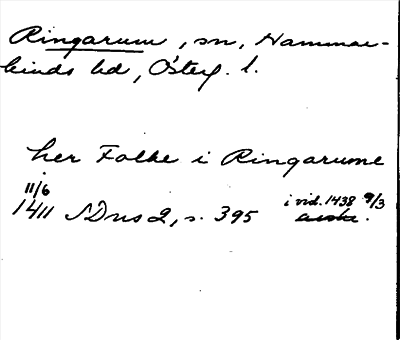 Ringarum, sn, Hammar-
kinds hd, Österg. l.
her Folke i Ringarume
11/6
1411 SDns 2, s. 395 i vid. 1438 9/3